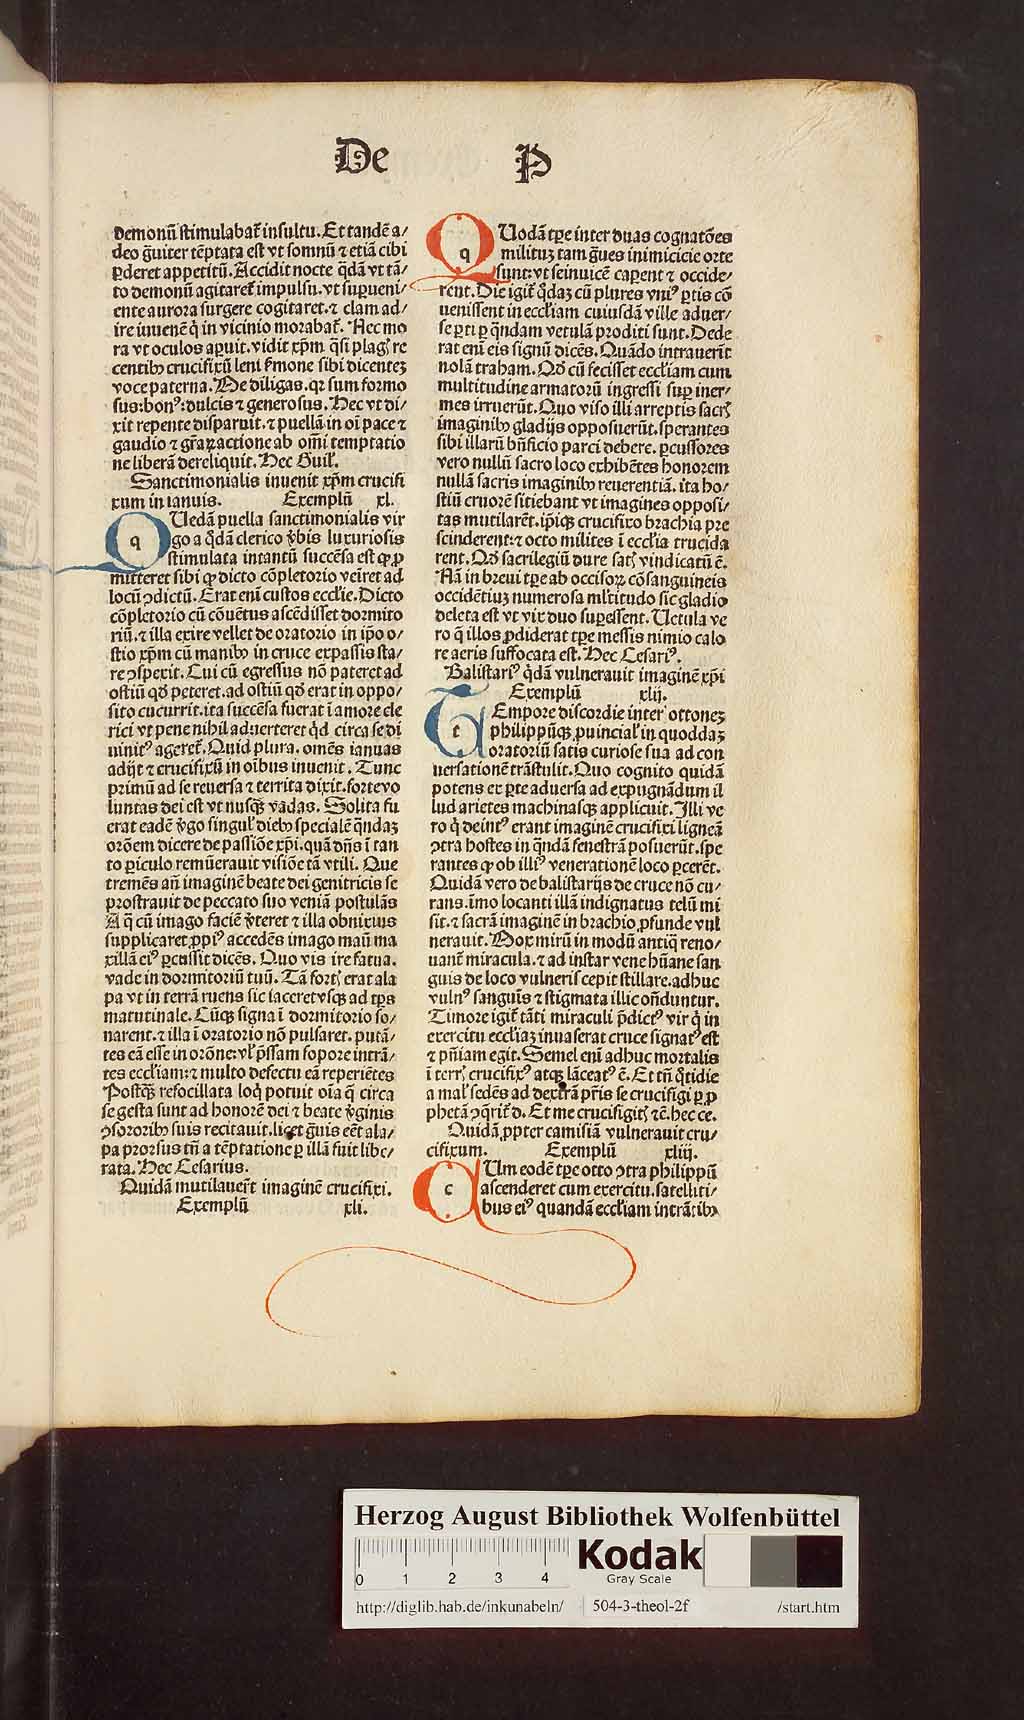 De P
demonū stimulabat᷑ insultu. Et tandē a/
deo g̃uiter tēptata est vt somnū ⁊ etiā cibi
ꝑderet appetitū. Accidit nocte q̄dā vt tā/
to demonū agitaret᷑ impulsu. vt suꝑueni/
ente aurora surgere cogitaret. ⁊ clam ad/
ire iuuenē q̇ in vicinio morabat᷑. Nec mo
ra vt oculos aꝑuit. vidit xp̄m q̄si plagꝭ re
centibꝰ crucifixū leni s̓mone sibi dicenteꝫ
voce paterna. Me diligas. qꝛ sum formo
sus: bonꝰ: dulcis ⁊ generosus. Hec vt di/
xit repente disparuit. ⁊ puellā in oī pace ⁊
gaudio ⁊ gr̄aꝝ actione ab om̄i temptatio
ne liberā dereliquit. Hec Guil᷑.
Sanctimonialis inuenit xp̄m crucifi
xum in ianuis. Exemplū xl.
q QUedā puella sanctimonialis vir
go a q̄dā clerico v̓bis luxuriosis
stimulata intantū succēsa est ꝙ ꝓ
mitteret sibi ꝙ dicto cōpletorio veīret ad
locū ↄdictū. Erat eni custos eccl̓ie. Dicto
cōpletorio cū cōuētus ascēdisset dormito
riū. ⁊ illa exire vellet de oratorio in ip̄o o/
stio xp̄m cū manibꝰ in cruce expassis sta/
re ↄspexit. Cui cū egressus nō pateret ad
ostiū qd̓ peteret. ad ostiū qd̓ erat in oppo/
sito cucurrit. ita succēsa fuerat ī amore cle
rici vt pene nihil aduerteret q̇d circa se di
uinitꝰ ageret᷑. Quid plura. omēs ianuas
adijt ⁊ crucifixū in oībus inuenit. Tunc
primū ad se reuersa ⁊ territa dixit. forte vo
luntas dei est vt nusqꝫ vadas. Solita fu
erat eadē v̓go singul᷑ diebꝰ specialē q̄ndaꝫ
orōem dicere de passiōe xp̄i. quā dn̄s ī tan
to ꝑiculo remūerauit visiōe tā vtili. Que
tremēs an̄ imaginē beate dei genitricis se
prostrauit de peccato suo veniā postulās
A q̄ cū imago faciē v̓teret ⁊ illa obnixius
supplicaret ꝓpiꝰ accedēs imago maū ma
xillā eiꝰ ꝑcussit dicēs. Quo vis ire fatua.
vade in dormitoriū tuū. Tā fortꝭ erat ala
pa vt in terrā ruens sic iaceret vsqꝫ ad tꝑs
matutinale. Cūqꝫ signa ī dormitorio so/
narent. ⁊ illa ī oratorio nō pulsaret. putā/
tes eā esse in orōne: vl̓ p̄ssam sopore intrā/
tes eccl̓iam: ⁊ multo defectu eā reperiētes
Postqꝫ refocillata loq̇ potuit oīa q̄ circa
se gesta sunt ad honorē dei ⁊ beate v̓ginis
ↄsororibꝰ suis recitauit. licet g̃uis eēt ala/
pa prorsus tn̄ a tēptatione ꝑ illā fuit libe/
rata. Hec Cesarius.
Quidā mutilauer̄t imaginē crucifixi.
Exemplū xli.
q QUodā tꝑe inter duas cognatōes
milituꝫ tam g̃ues inimicicie orte
sunt: vt seinuicē caperent ⁊ occide/
rent. Die igit᷑ q̄daꝫ cū plures vniꝰ ꝑtis cō
uenissent in eccl̓iam cuiusdā ville aduer/
se ꝑti ꝑ q̄ndam vetulā proditi sunt. Dede
rat eni eis signū dicēs. Quādo intrauerīt
nolā traham. Qd̓ cū fecisset eccl̓iam cum
multitudine armatorū ingressi suꝑ iner/
mes irruerūt. Quo viso illi arreptis sacrꝭ
imaginibꝰ gladijs opposuerūt. sperantes
sibi illarū bn̄ficio parci debere. ꝑcussores
vero nullū sacro loco exhibētes honorem
nullā sacris imaginibꝰ reuerentiā. ita ho/
stiū cruorē sitiebant vt imagines opposi/
tas mutilarēt. ip̄iqꝫ crucifixo brachia pre
scinderent: ⁊ octo milites ī eccl̓ia trucida
rent. Qd̓ sacrilegiū dure satꝭ vindicatū ē.
Nā in breui tꝑe ab occisoꝝ cōsanguineis
occidētiuꝫ numerosa ml̓titudo sic gladio
deleta est vt vix duo suꝑessent. Uetula ve
ro q̄ illos ꝓdiderat tꝑe messis nimio calo
re aeris suffocata est. Hec Cesariꝰ.
Balistariꝰ q̄dā vulnerauit imaginē xp̄i
Exemplū xlij.
t TEmpore discordie inter ottoneꝫ
philippūqꝫ ꝓuincial᷑ in quoddaꝫ
oratoriū satis curiose sua ad con
uersationē trāstulit. Quo cognito quidā
potens ex ꝑte aduersa ad expugnādum il
lud arietes machinasqꝫ applicuit. Illi ve
ro q̇ deintꝰ erant imaginē crucifixi ligneā
ↄtra hostes in q̄ndā fenestrā posuerūt. spe
rantes ꝙ ob illiꝰ venerationē loco ꝑcerēt.
Quidā vero de balistarijs de cruce nō cu/
rans. īmo locanti illā indignatus telū mi
sit. ⁊ sacrā imaginē in brachio ꝓfunde vul
nerauit. Mox mirū in modū antiq̄ reno/
uanē miracula. ⁊ ad instar vene hūane san
guis de loco vulneris cepit stillare. adhuc
vulnꝰ sanguīs ⁊ stigmata illic on̄duntur.
Timore igit᷑ tāti miraculi p̄dictꝰ vir q̇ in
exercitu eccl̓iaꝫ inuaserat cruce signatꝰ est
⁊ pn̄iam egit. Semel eni adhuc mortalis
ī terrꝭ crucifixꝰ atqꝫ lāceatꝰ ē. Et tn̄ q̇tidie
a mal᷑ sedēs ad dextrā pr̄is se crucifigi ꝑ ꝓ
phetā ↄq̇rit᷑ d. Et me crucifigitꝭ ⁊ē. hec ce.
Quidā ꝓpter camisiā vulnerauit cru/
cifixum. Exemplū xliij.
c CUm eodē tꝑe otto ↄtra philippū
ascenderet cum exercitu. satelliti/
bus eiꝰ quandā eccl̓iam intrātibꝰ
Herzog August Bibliothek Wolfenbüttel
0 1 2 3 4
Kodak
Gray Scale
http://diglib.hab.de/inkunabeln/ 504-3-theol-2f /start.htm